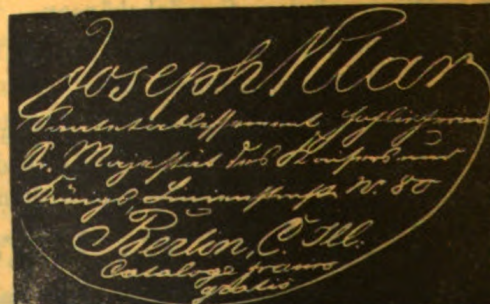 Joseph Klar
Samenetablissement Hoflieferant
Sr. Majestät des Kaisers und
Königs Linienstrasse N. 80
Berlin, C. Ill.
Cataloge franco
gratis